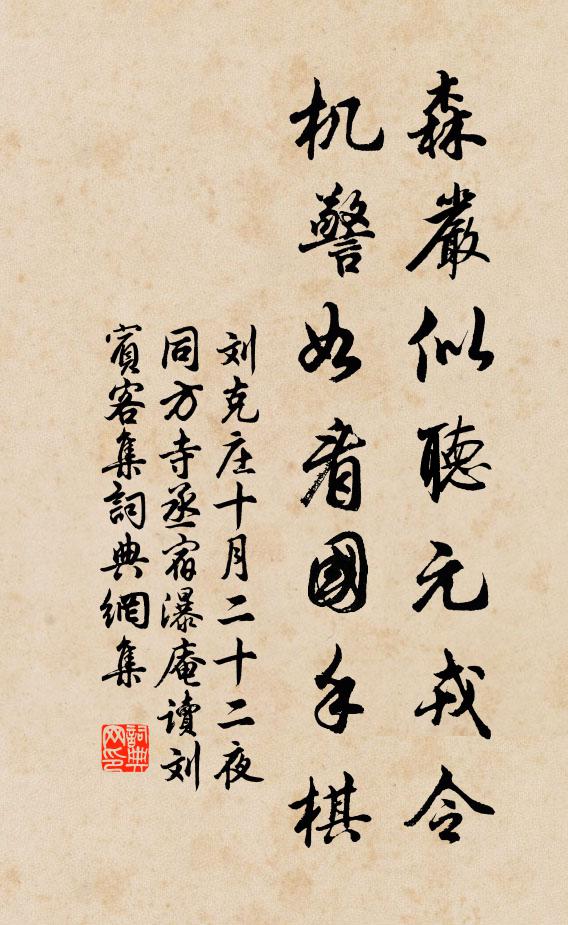 森嚴似聽元戎令
机警如看國手棋
刘克庄十月二十二夜
同方寺丞宿瀑庵读刘
賓客集詞典網集
詞典网印